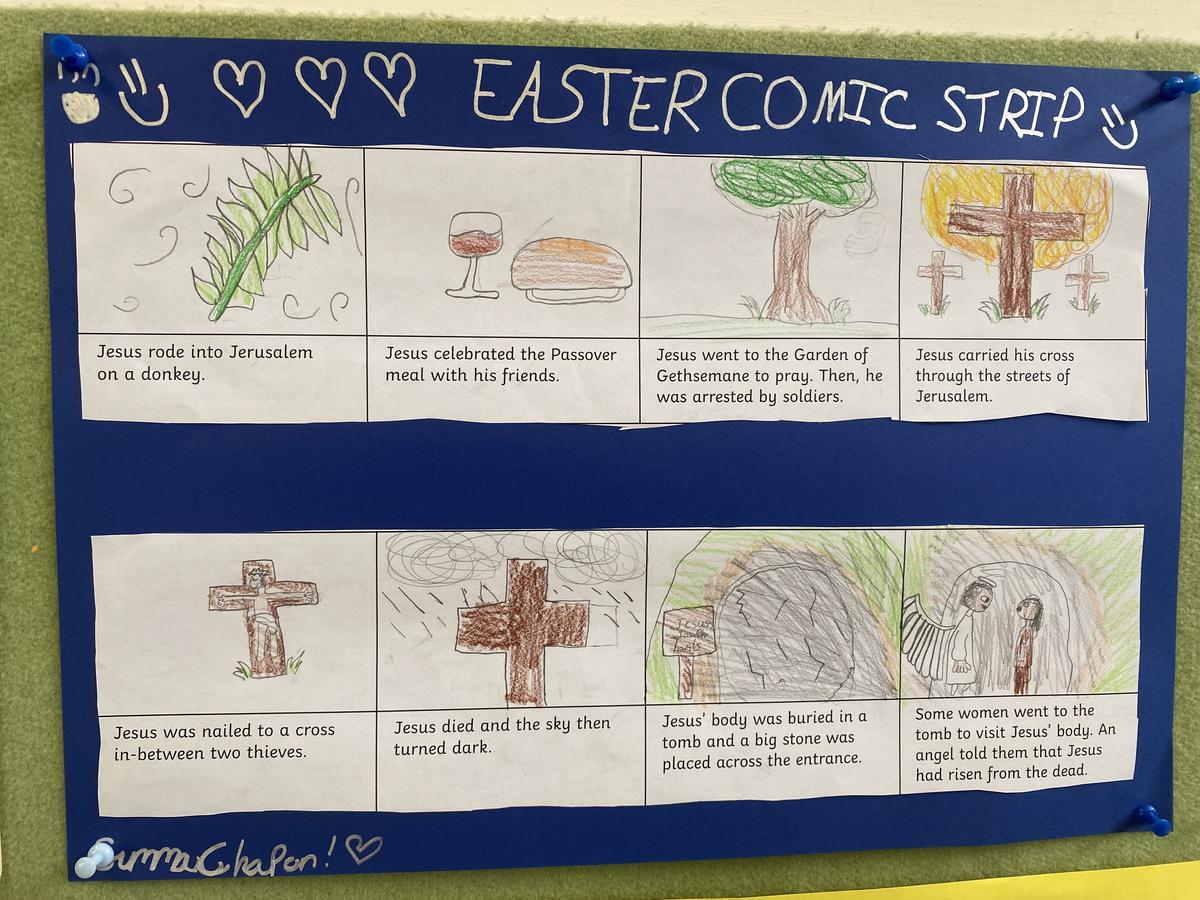 EASTER COMIC STRIP
Jesus rode into Jerusalem
on a donkey.
Jesus celebrated the Passover
meal with his friends.
Jesus went to the Garden of
Gethsemane to pray. Then, he
was arrested by soldiers.
Jesus carried his cross
through the streets of
Jerusalem.
Jesus was nailed to a cross
in-between two thieves.
Jesus died and the sky then
turned dark.
Jesus
Jesus' body was buried in a
tomb and a big stone was
placed across the entrance.
Some women went to the
tomb to visit Jesus' body. An
angel told them that Jesus
had risen from the dead.